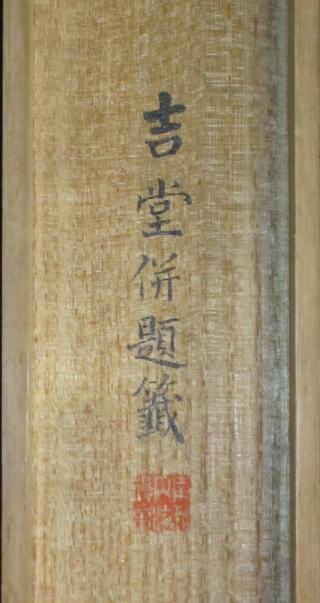 吉堂併題籤